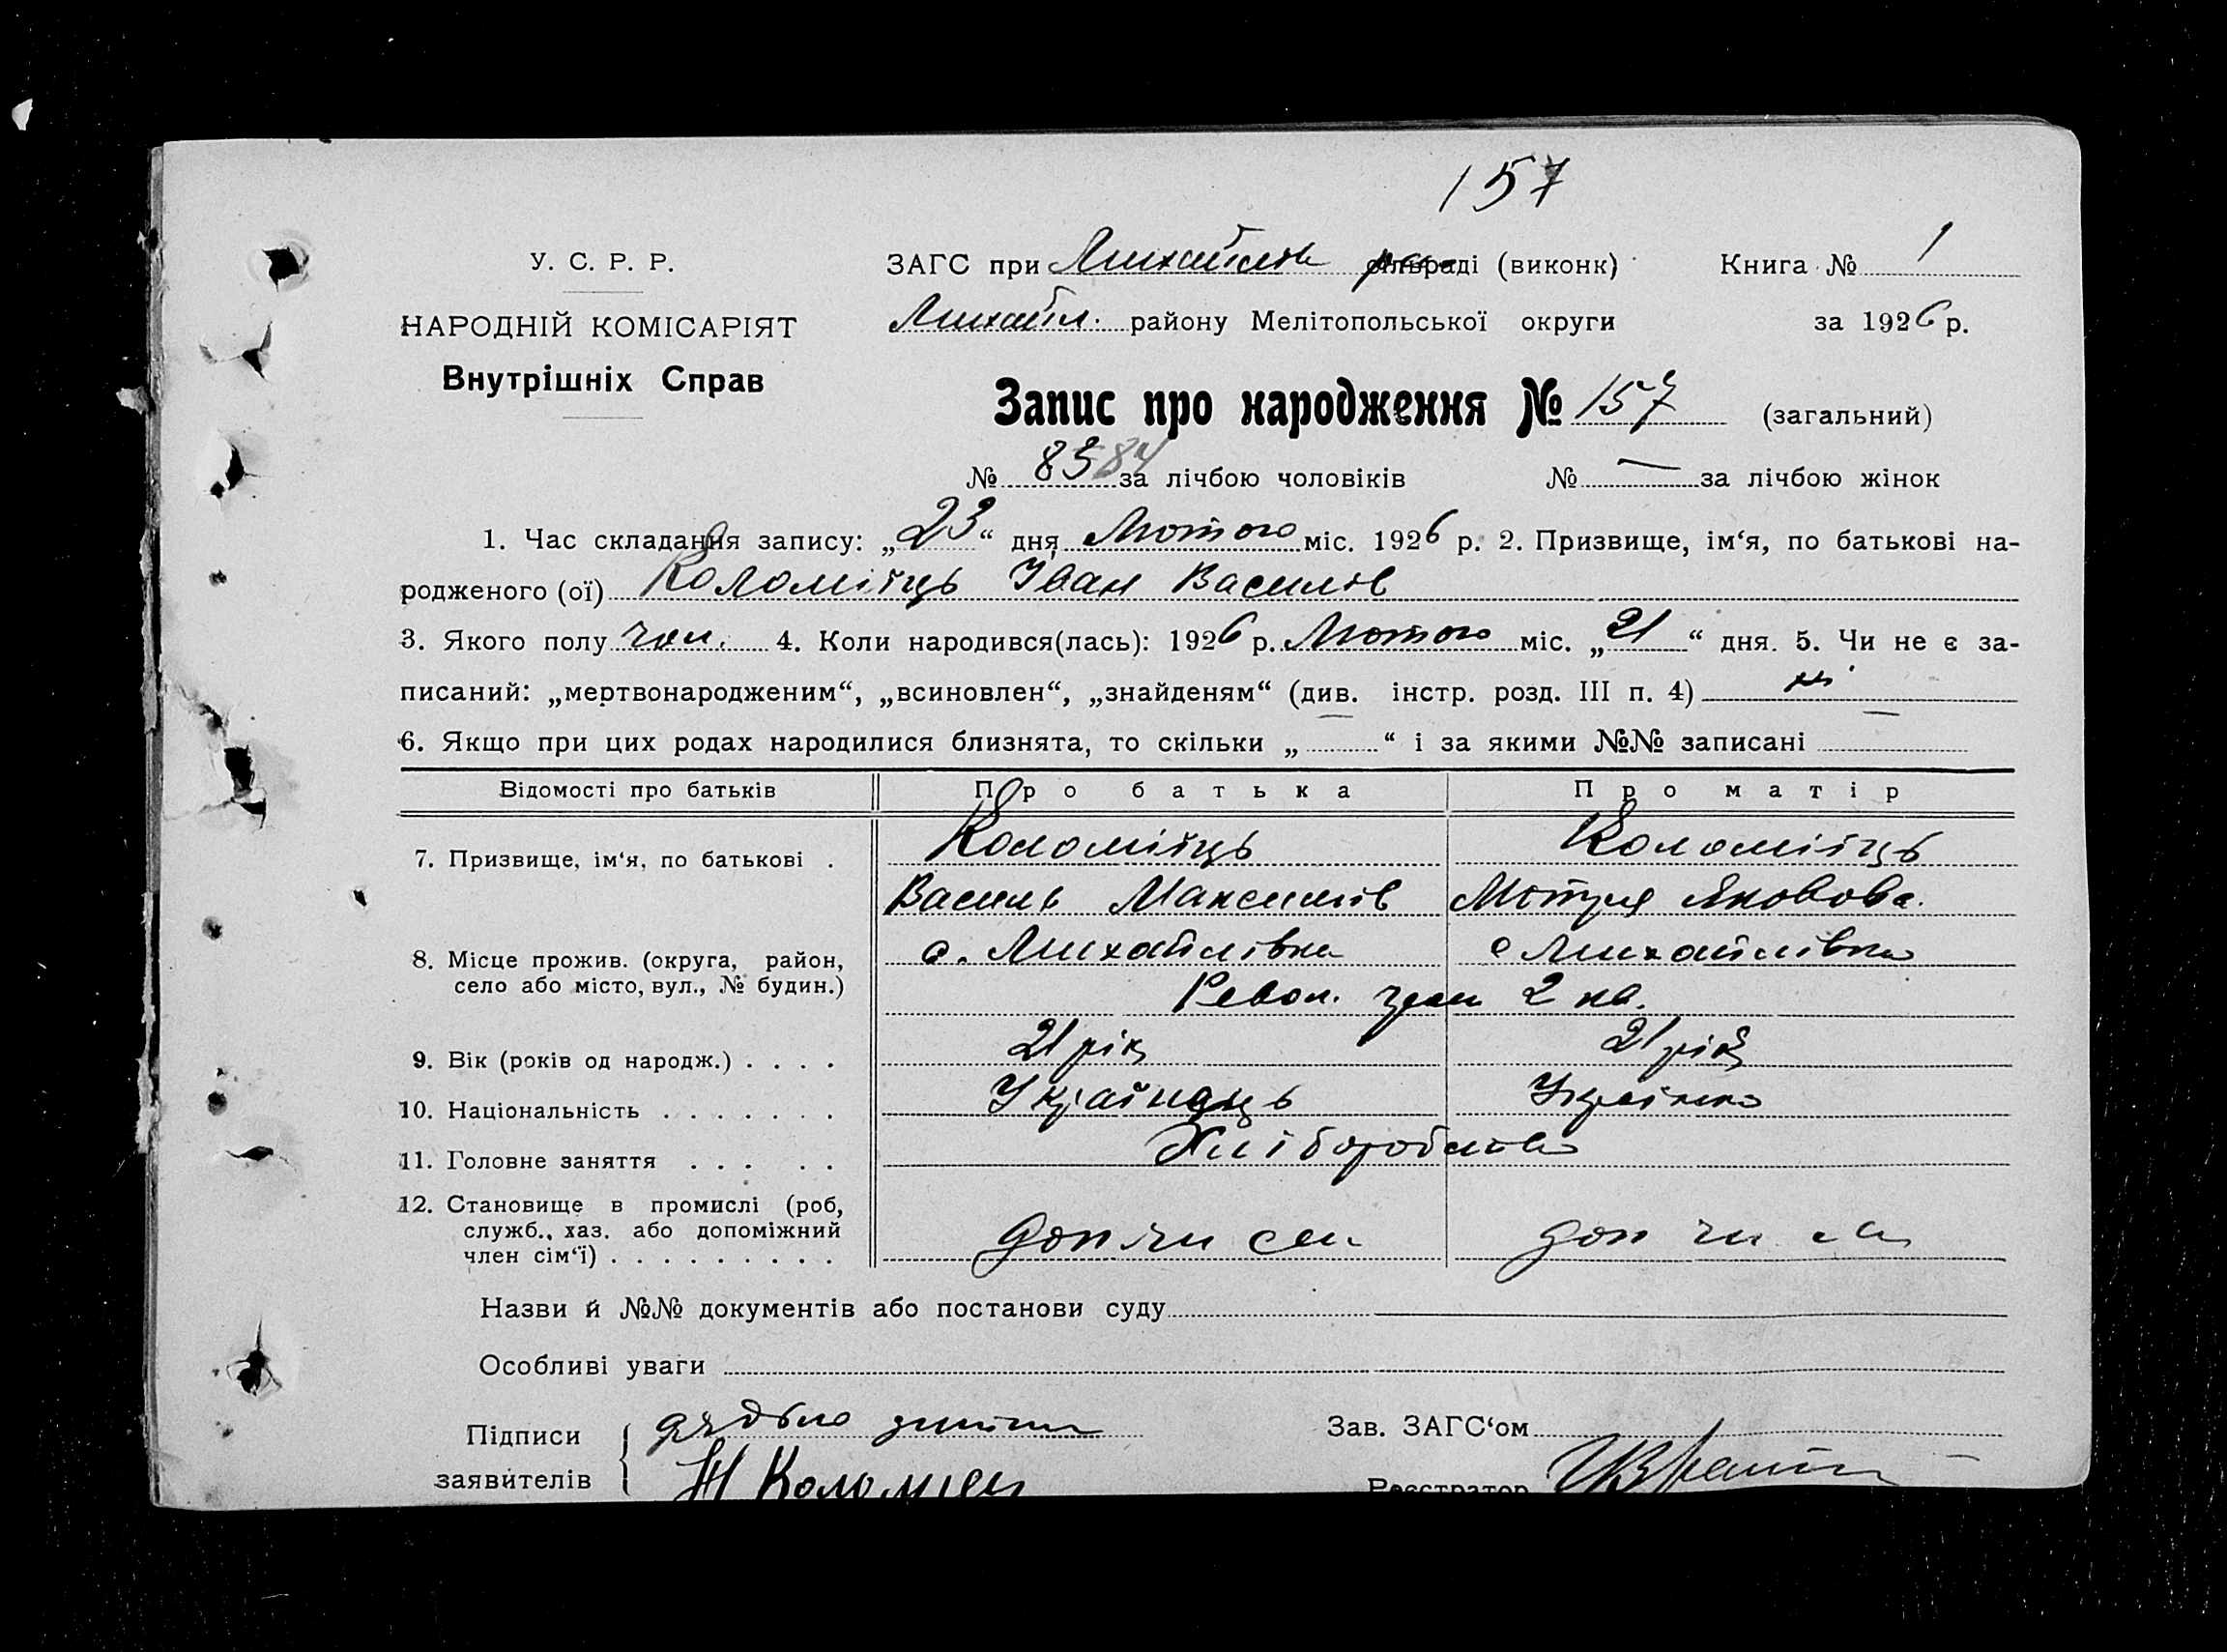 157
У. С. Р. Р.
ЗАГС при Михайлів раді (виконк)
Книга № 1
НАРОДНІЙ КОМІСАРІЯТ
Михайл. району Мелітопольської округи
за 1926 р.
Внутрішніх Справ
Запис про народження № 157 (загальний)
№ 83 84 за лічбою чоловіків № — за лічбою жінок
1. Час складання запису: „23“ дня Лютого міс. 1926 р. 2. Призвище, ім‘я, по батькові на-
родженого (ої) Коломієць Іван Василів
3. Якого полу чол. 4. Коли народився(лась): 1926 р. Лютого міс. „21“ дня. 5. Чи не є за-
писаний: „мертвонародженим“, „всиновлен“, „знайденям“ (див. інстр. розд. III п. 4) ні
6. Якщо при цих родах народилися близнята, то скільки „ — “ і за якими №№ записані —
Відомості про батьків Про батька Про матір
7. Призвище, ім‘я, по батькові . Коломієць Коломієць
Василь Максимів Мотря Яковова.
8. Місце прожив. (округа, район, с. Михайлівка с Михайлівка
село або місто, вул., № будин.) Револ. 2 кв.
9. Вік (років од народж.) . . . . 21 рік 21 рік
10. Національність . . . . . . . Українець Українка
11. Головне заняття . . . . . Хліборобство
12. Становище в промислі (роб,
служб., хаз. або допоміжний доп чл сем доп чл сем
член сім‘ї) . . . . . . . . .
Назви й №№ документів або постанови суду
Особливі уваги
Підписи
Зав. ЗАГС‘ом
заявителів Коломиец
Реєстратор